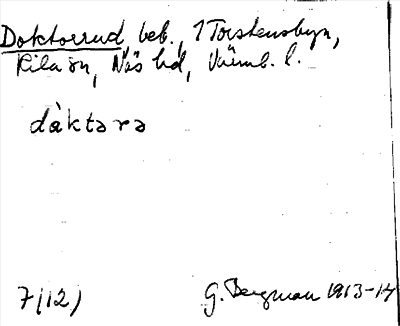 Doktorrud beb., 1 Torstensbyn,
Kila sn, Näs hd, Värml. l.
dàktərə
7(12)
G. Bergman 1913-14